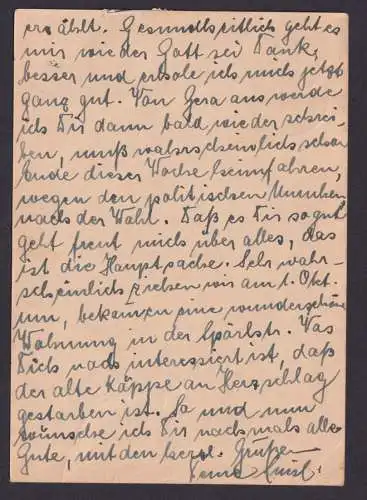 erzählt. Gesundheitlich geht es
mir wieder Gott sei Dank,
besser und erhole ich mich jetzt
ganz gut. Von Gera aus werde
ich Dir dann bald wieder schrei-
ben, muß wahrscheinlich schon
Ende dieser Woche heimfahren,
wegen den politischen Unruhen
nach der Wahl. Daß es Dir so gut
geht freut mich über alles, das
ist die Hauptsache. Sehr wahr-
scheinlich ziehen wir am 1. Okt.
um, bekommen eine wunderschöne
Wohnung in der Spärlstr. Was
Dich noch interessiert ist, daß
der alte Käppe an Herzschlag
gestorben ist. So und nun
wünsche ich Dir nochmals alles
Gute, mit den herzl. Grüßen